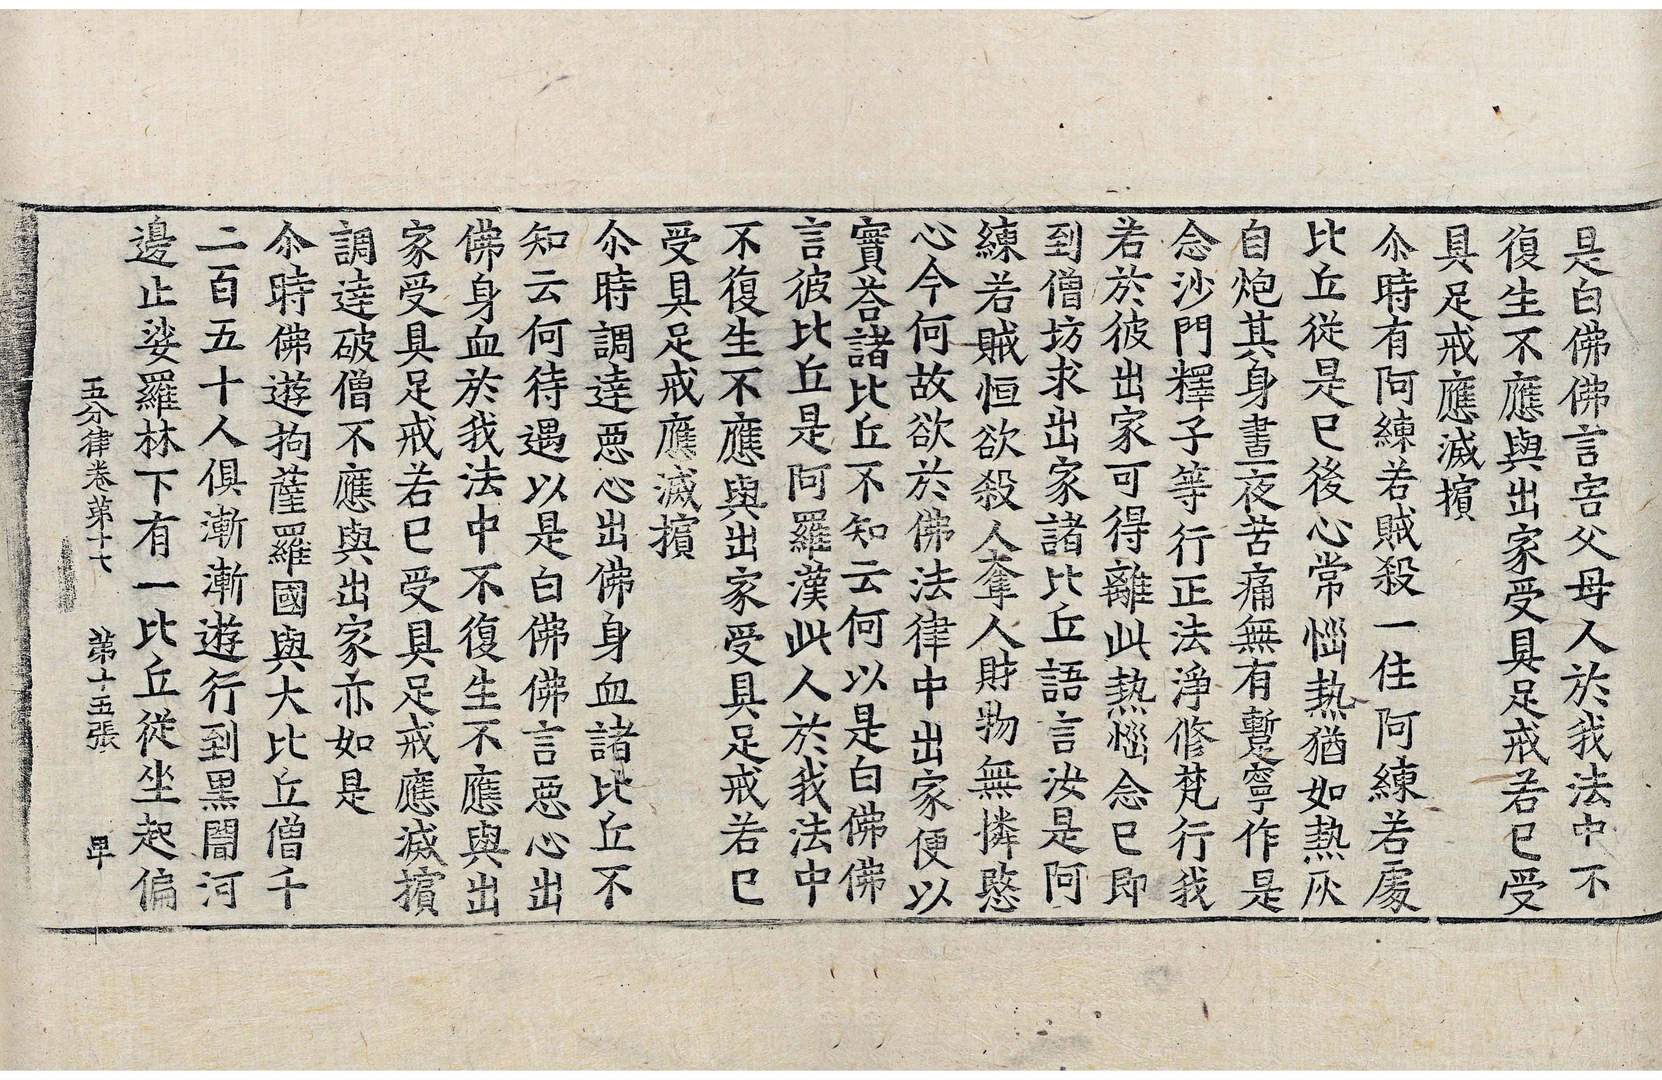 是白佛佛言害父母人於我法中不
復生不應與出家受具足戒若已受
具足戒應滅擯
尒時有阿練若賊殺一住阿練若處
比丘從是已後心常惱熱猶如熱灰
自炮其身晝夜苦痛無有暫寧作是
念沙門釋子等行正法淨修梵行我
若於彼出家可得離此熱惱念已即
到僧坊求出家諸比丘語言汝是阿
練若賊恒欲殺人奪人財物無憐愍
心今何故欲於佛法律中出家便以
實荅諸比丘不知云何以是白佛佛
言彼比丘是阿羅漢此人於我法中
不復生不應與出家受具足戒若已
受具足戒應滅擯
尒時調達惡心出佛身血諸比丘不
知云何待遇以是白佛佛言惡心出
佛身血於我法中不復生不應與出
家受具足戒若已受具足戒應滅擯
調達破僧不應與出家亦如是
尒時佛遊拘薩羅國與大比丘僧千
二百五十人俱漸漸遊行到黑闇河
邊止娑羅林下有一比丘從坐起偏
五分律卷第十七 第十五張 卑